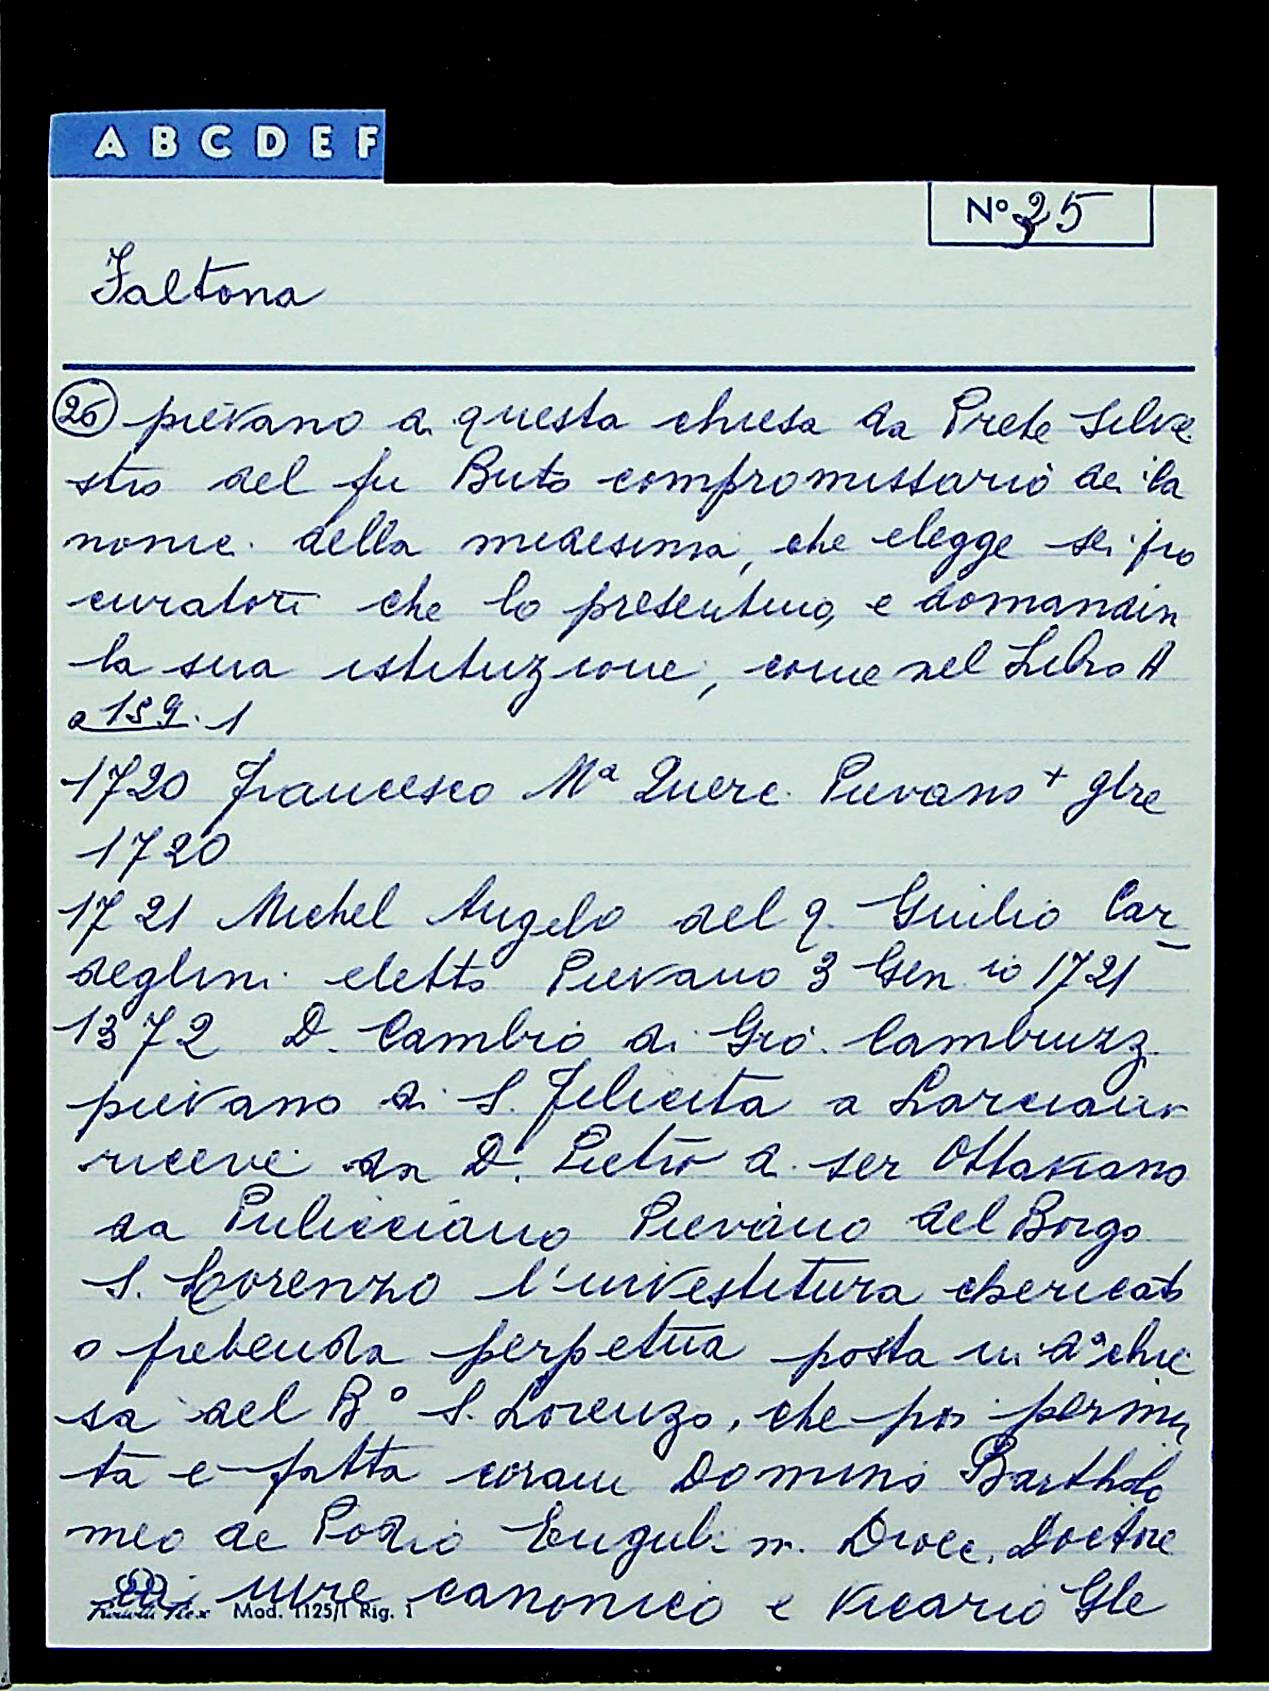 A B C D E F
Nº 25
Faltona
26 pievano a questa chiesa da Prete Silve
stro del fu Buto compromissario dei ca
nonici della medesima, che elegge sei pro
curatori che lo presentino, e domandin
la sua istituzione, come nel Libro A
a 159. 1
1720 Francesco Mª Querci Pievano + 9bre
1720
1721 Michel Angelo del q. Giulio Car
deglini eletto Pievano 3 Gen io 1721
1372 D. Cambio di Gio. Cambiuzzi
pievano di S. Felicita a Larciano
riceve da D. Pietro di ser Ottaviano
da Pulicciano Pievano del Borgo
S. Lorenzo l'investitura chericato
o prebenda perpetua posta in dª chie
sa del Bº S. Lorenzo, che poi permu
ta e fatta coram Domino Bartholo
meo de Podio Eugubin. Dioec. Doctore
in iure canonico e Vicario Gle
Mod. 1125/1 Rig. 1